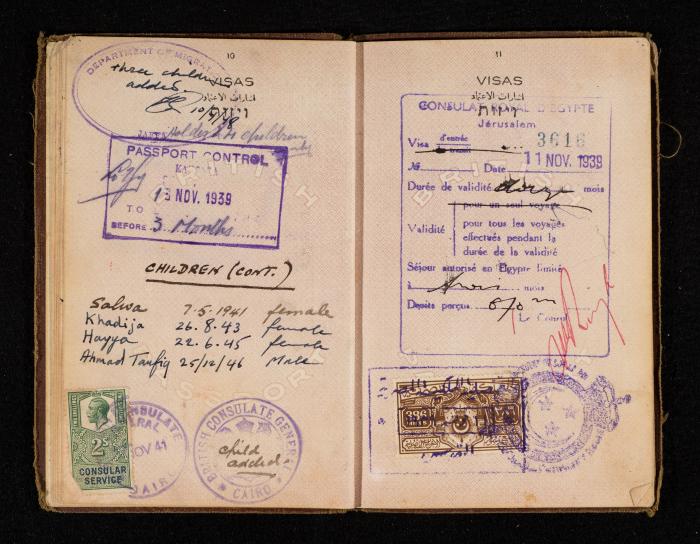 10
VISAS
اشارات الاعتماد
ויזות
DEPARTMENT OF MIGRAT
three children
added.
10/4/39
JAFFA
Holder 24 children
only
PASSPORT CONTROL
KANTARA
13 NOV. 1939
TO
BEFORE 3 Months
CHILDREN (CONT.)
Salwa 7-5-1941 female
Khadija 26.8.43 female
Hayya 22.6.45 female
Ahmad Taufiq 25/12/46 Male
2S
CONSULAR
SERVICE
CONSULATE
NOV 41
CAIRO
BRITISH CONSULATE GENERAL
child
added
CAIRO
11
VISAS
اشارات الاعتماد
ויזות
CONSULAT ROYAL D'EGYPTE
Jérusalem
Visa d'entrée 3616
transit
№ Date 11 NOV. 1939
Durée de validité douze mois
pour un seul voyage
Validité pour tous les voyages
effectués pendant la
durée de la validité
Séjour autorisé en Egypte limité
à trois mois
Droits perçus
Le Consul